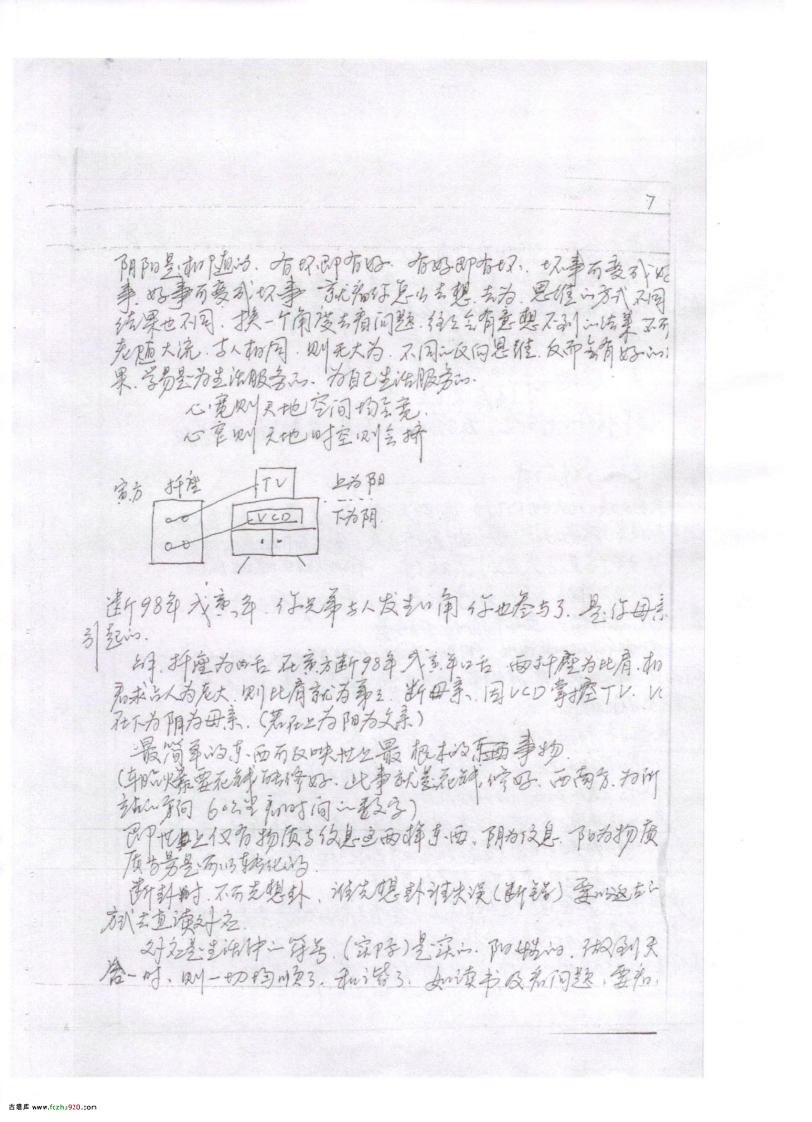 7
阴阳是相随的、有坏即有好、有好即有坏、坏事可变成好
事、好事可变成坏事 就看你怎么去想、去为、思维的方式不同
结果也不同、换一个角度去看问题、往往会有意想不到的结果、不可
老随大流、与人相同、则无大为、不同的反向思维、反而会有好的结
果、学易是为生活服务的、为自己生活服务的、
心宽则天地空间均会宽、
心窄则天地时空则会挤
寅方 插座 TV 上为阳
VCD 下为阴、
断98年戊寅年、你兄弟与人发生口角 你也参与了、是你母亲
引起的、
插座为口舌 在寅方断98年戊寅年口舌、两插座为比肩、
则比肩就为兄弟、断母亲、因VCD掌握TV、
在下为阴为母亲、(若在上为阳为父亲)
最简单的东西可反映世上最根本的东西事物、
(车胎爆要花钱去修好、此事就是花钱修好、西南方、为所
站的方向 6 时间的数字)
即世上仅有物质与信息这两样东西、阴为信息、阳为物质
质与是可以转化的、
断卦时、不可先想卦、谁先想卦谁失误(断错)要以
方式去直读对应、
对应是生活中的符号、是实的、阳性的、做到天
合一时、则一切均顺了、和谐了、如读书及看问题、要看、
古籍库 www.fozhu920.com